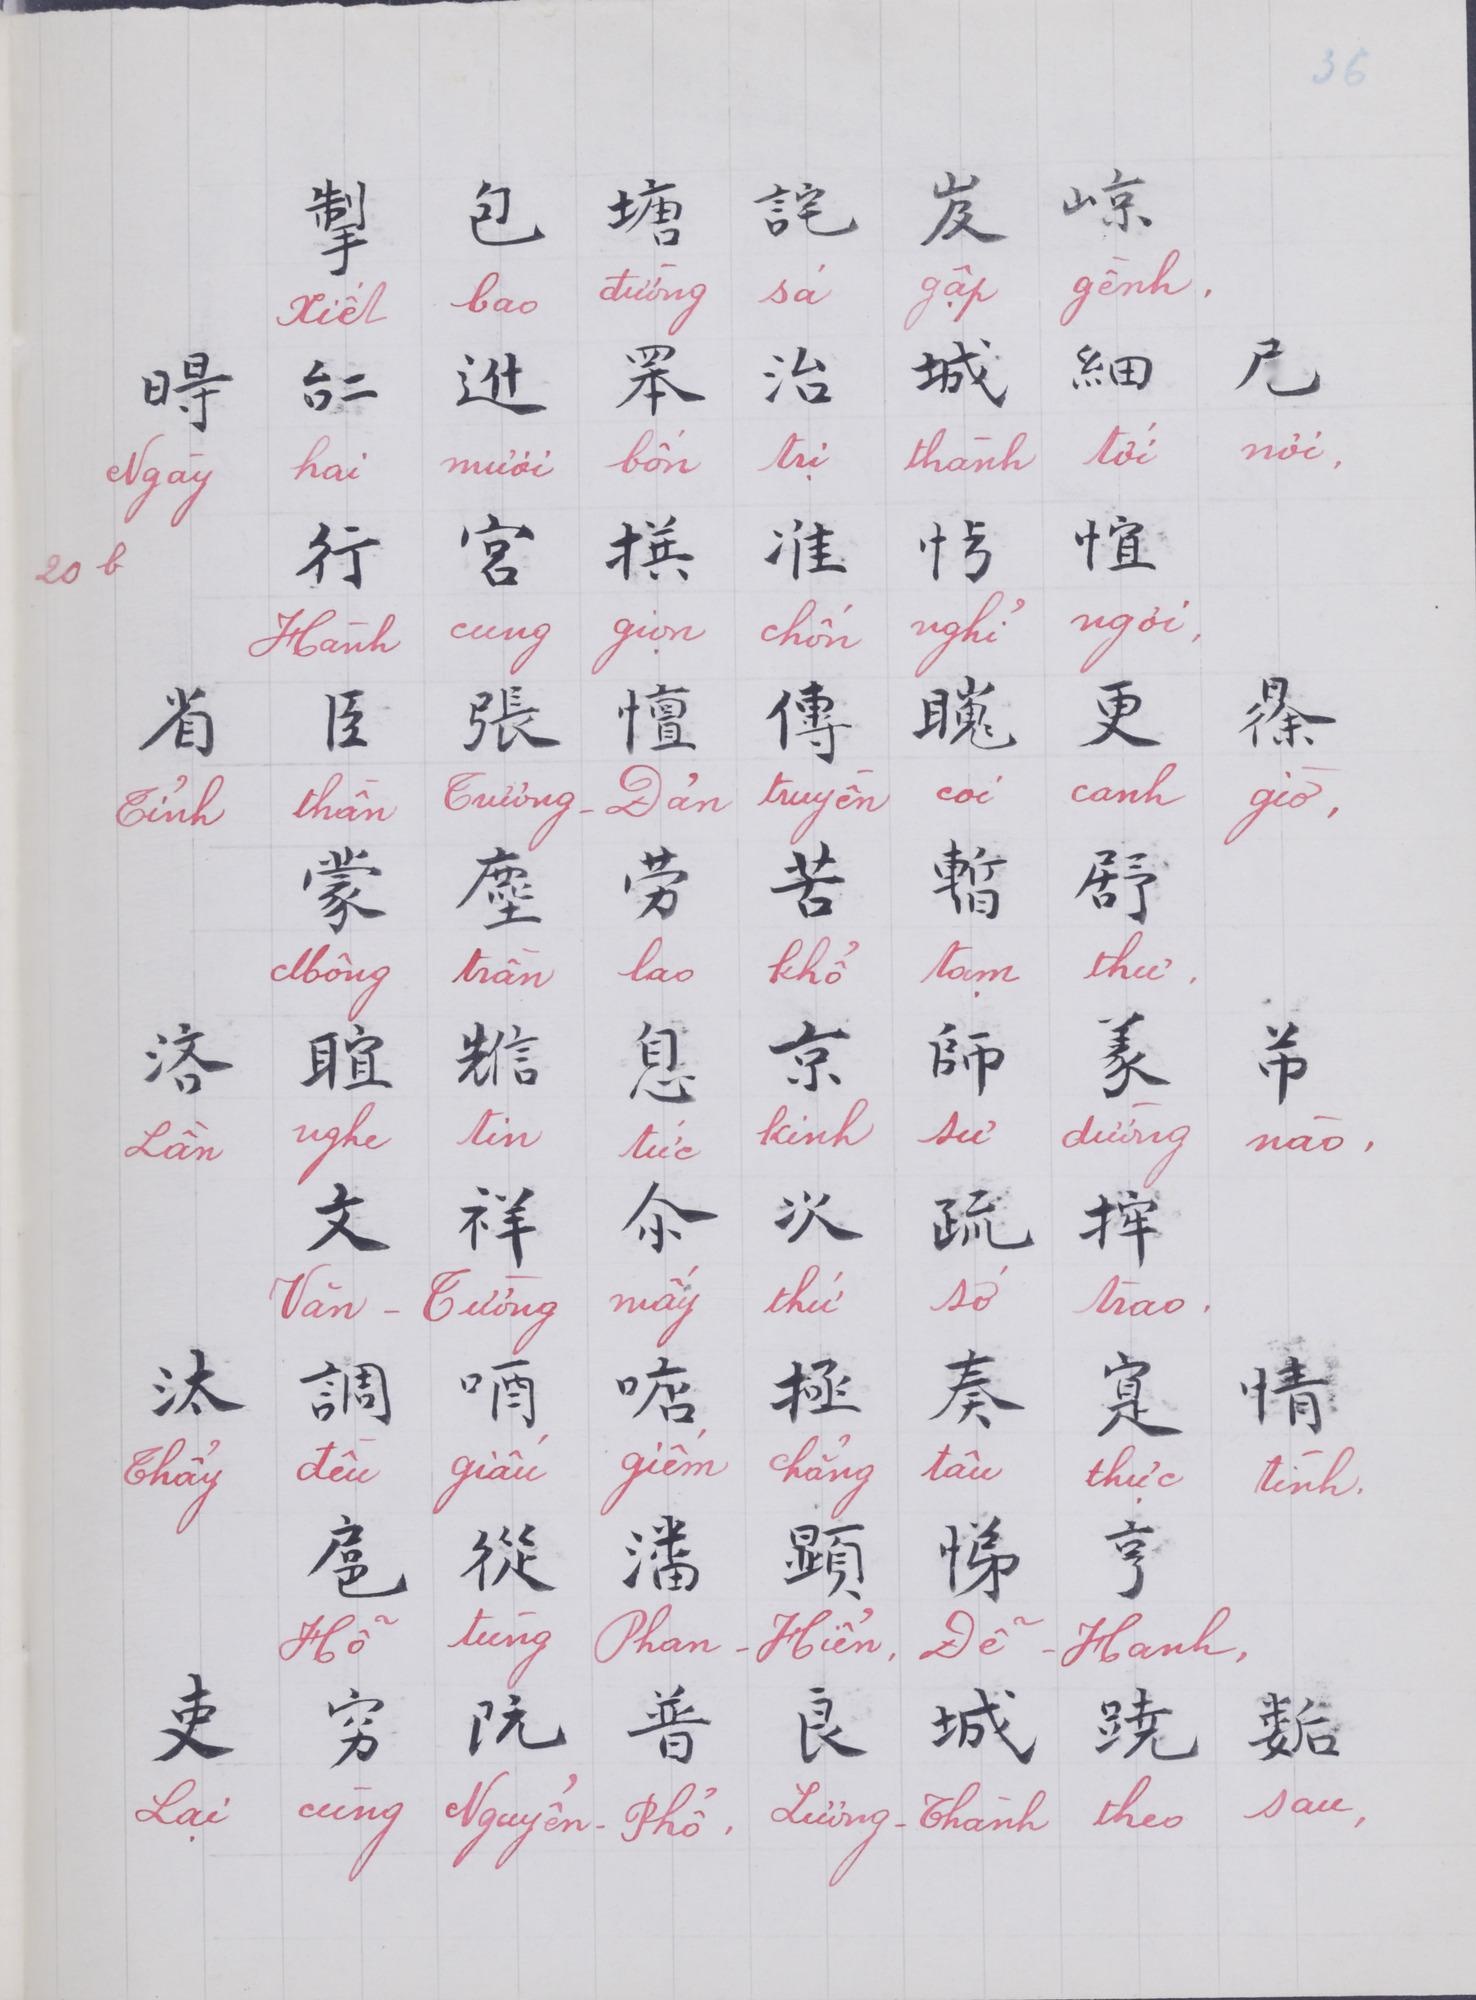 36
掣 包 塘 詫 岌 𡹡
Xiết bao đường sá gập gềnh,
𣈗 𠄩 𨒒 罘 治 城 細 尼
Ngày hai mươi bốn trị thành tới nơi,
20 b
行 宮 撰 准 𢪀 𢙲
Hành cung giọn chốn nghỉ ngơi,
省 臣 張 憻 傳 𥊚 更 𣇞
Tỉnh thần Trương-Đản truyền coi canh giờ,
蒙 塵 劳 苦 暫 舒
Mông trần lao khổ tạm thư,
𣴓 𦖑 信 息 京 師 羕 芇
Lần nghe tin tức kinh sư dường nào,
文 祥 尒 次 疏 㨔
Văn-Tường mấy thứ sớ trao,
汰 調 唒 唸 拯 奏 寔 情
Thảy đều giấu giếm chẳng tâu thực tình.
扈 從 潘 顕 悌 亨
Hỗ tùng Phan-Hiển, Đễ-Hanh,
吏 穷 阮 普 良 城 蹺 𢖖
Lại cùng Nguyễn-Phổ, Lương-Thành theo sau,